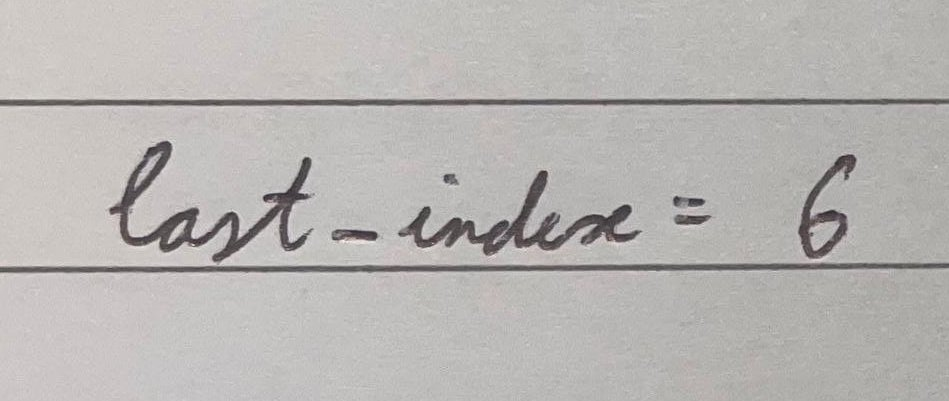 last_index = 6